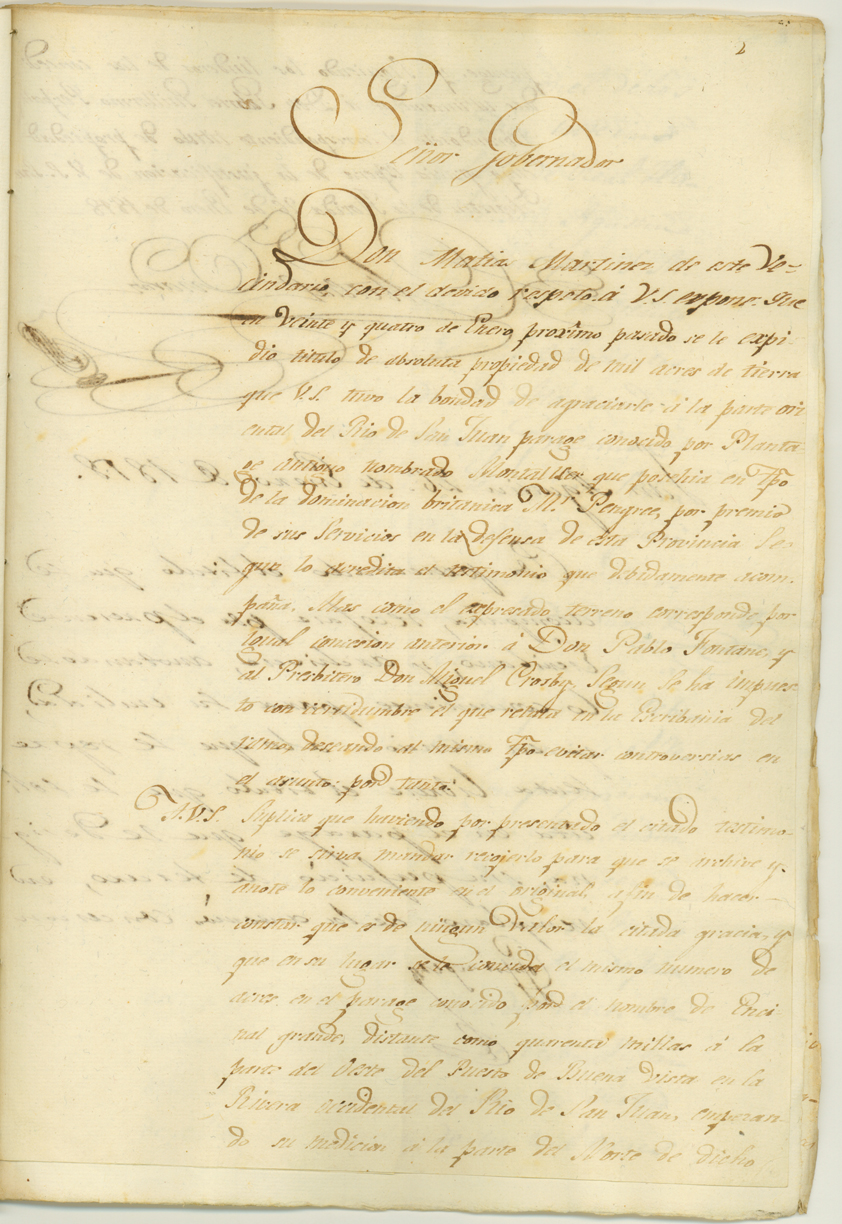 2
Señor Gobernador
Don Matias Martinez de este Ve-
cindario, con el devido respeto á V.S. expone: Que
en Veinte y quatro de Enero proximo pasado se le expi-
dio titulo de absoluta propiedad de mil acres de tierra
que V.S. tuvo la bondad de agraciarle á la parte ori
ental del Rio de San Juan parage conocido por Planta-
ge antiguo nombrado que poschia en Tpo
de la dominacion britanica Mr. Pengree, por premio
de sus Servicios en la defensa de esta Provincia Se-
gun lo acredita el testimonio que debidamente acom-
paña. Mas como el expresado terreno corresponde por
Igual concesion anterior á Don Pablo Fontane, y
al Presbitero Don Miguel Crosby, Segun se ha impues-
to con certidumbre el que relata en la Escribania del
ramo, deseando al mismo Tpo evitar controversias en
el asunto: por tanto:
A.V.S. Suplica que haviendo por presentado el citado testimo-
nio se sirva mandar recojerlo para que se archive y
anote lo conveniente en el original, afin de hacer
constar que es de ningun Valor la citada gracia, y
que en su lugar se le conceda el mismo numero de
acres en el parage conocido por el nombre de Enci-
nal grande, distante como quarenta millas á la
parte del Oeste del Puesto de Buena vista en la
Rivera occidental del Rio de San Juan, empezan-
do su medicion á la parte del Norte de dicho